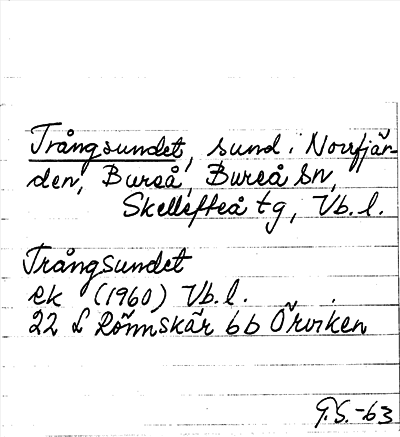 Trångsundet, sund i Norrfjär-
den, Bureå, Bureå sn,
Skellefteå tg, Vb. l.
Trångsundet
ek (1960) Vb. l.
22 L Rönnskär 6b Örviken
G.S.-63